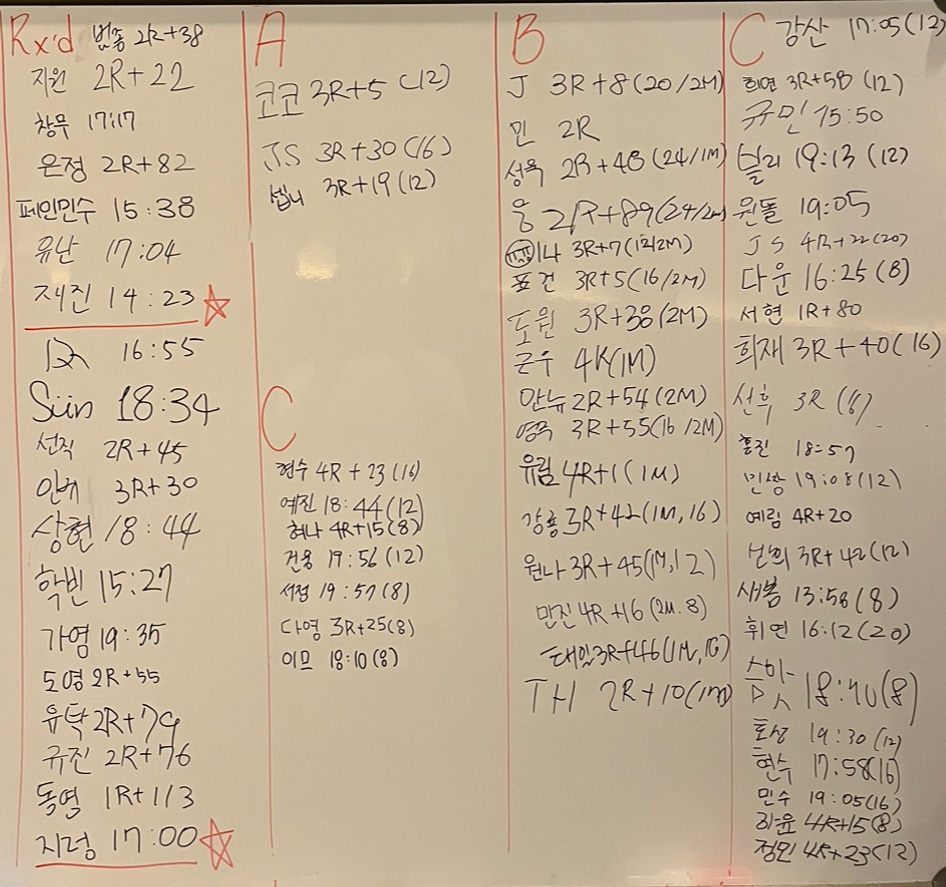 Rx'd 범종 2R+38
지원 2R+22
창무 17:17
은정 2R+82
페인민수 15:38
유난 17:04
재진 14:23
16:55
Sün 18:34
선직 2R+45
안케 3R+30
상현 18:44
학빈 15:27
가영 19:35
도영 2R+55
유탁 2R+79
규진 2R+76
동영 1R+113
지렁 17:00
A
코코 3R+5 (12)
JS 3R+30(16)
셉니 3R+19(12)
C
현수 4R+23(16)
예진 18:44(12)
혀나 4R+15(8)
건용 19:56(12)
서점 19:57(8)
다영 3R+25(8)
이므 18:10(8)
B
J 3R+8(20/2M)
민 2R
성욱 2R+48(24/1M)
웅 2R+89(24/2M)
나 3R+7(12/2M)
표건 3R+5(16/2M)
도원 3R+38(2M)
근우 4R(1M)
안뉴 2R+54(2M)
영욱 3R+55(16/2M)
유림 4R+1(1M)
강룡 3R+42(1M,16)
원나 3R+45(1M,12)
만진 4R+16(2M.8)
태일 3R+46(1M,16)
TH 2R+10(1M)
C 강산 17:05(12)
희연 3R+58(12)
규민 15:50
블리 19:13(12)
원돌 19:05
JS 4R+22(20)
다운 16:25(8)
서현 1R+80
희재 3R+40(16)
선후 3R(8)
홍진 18:57
민상 19:08(12)
예림 4R+20
선희 3R+42(12)
새봄 13:58(8)
휘연 16:12(20)
18:40(8)
효성 19:30(12)
현수 17:58(16)
민수 19:05(16)
하윤 4R+15(8)
정민 4R+23(12)